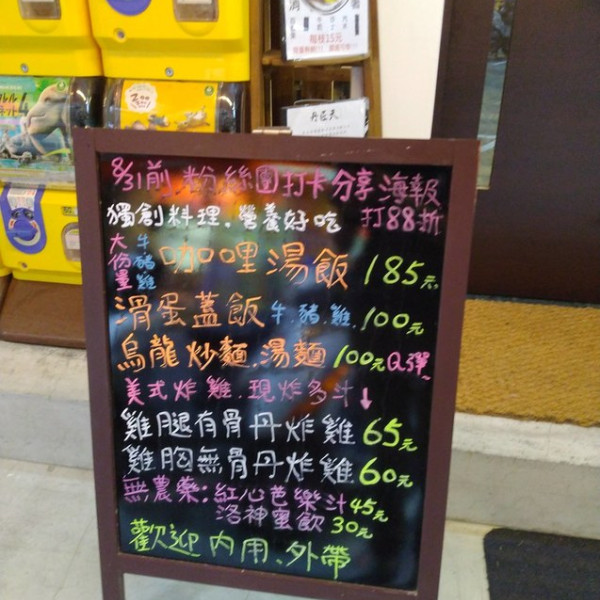 8/31前,粉絲團打卡分享海報
打88折
獨創料理.營養好吃
大份量 牛豬雞 咖哩湯飯 185元
滑蛋蓋飯 牛.豬.雞. 100元
烏龍炒麵.湯麵 100元 Q彈
美式炸雞.現炸多汁↓
雞腿有骨丹炸雞 65元
雞胸無骨丹炸雞 60元
無農藥:紅心芭樂汁 45元
洛神蜜飲 30元
歡迎內用、外帶
丹匠天
每枝15元